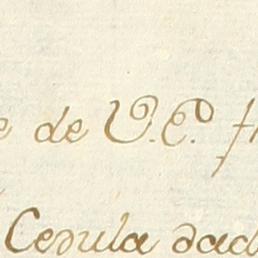 de V.E.
Cedula dad